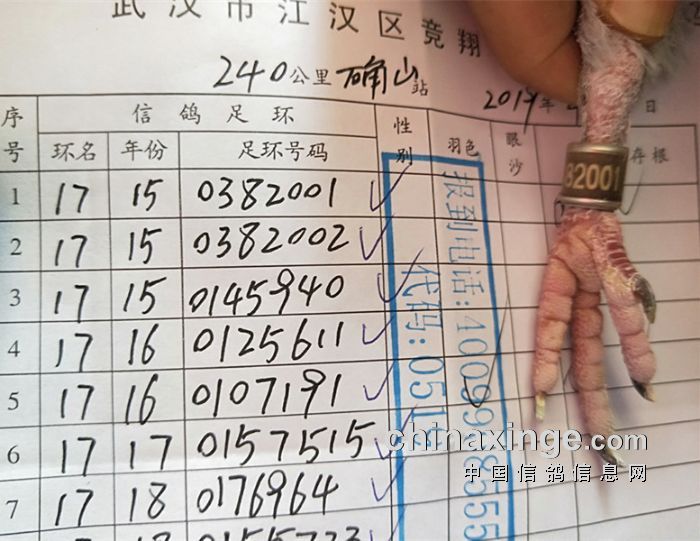 武汉市江汉区竞翔
240公里确山站
2019年 日
序号 信鸽足环 性别 羽色 眼沙 存根
环名 年份 足环号码
1 17 15 0382001 ✓
2 17 15 0382002 ✓
3 17 15 0145940 ✓
4 17 16 0125611 ✓
5 17 16 0107191 ✓
6 17 17 0157515 ✓
7 17 18 0176964 ✓
报到电话:4009978555
代码:051
82001
chinaxinge.com
中国信鸽信息网